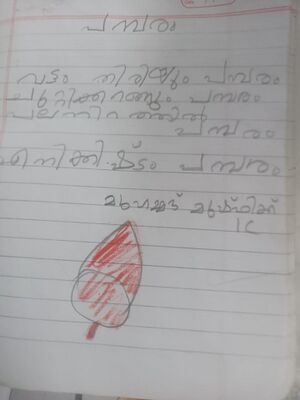 പമ്പരം
വട്ടം തിരിയും പമ്പരം
ചുറ്റിക്കറങ്ങും പമ്പരം
പലനിറത്തിൽ
പമ്പരം
എനിക്കിഷ്ടം പമ്പരം
മുഹമ്മദ്
1C